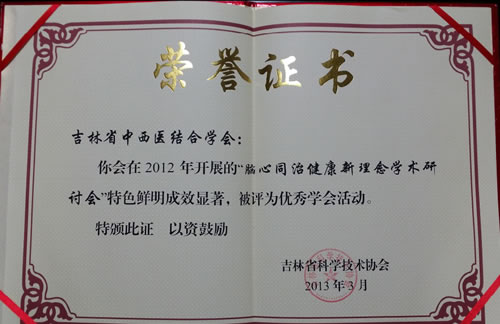 荣誉证书
吉林省中西医结合学会：
你会在2012年开展的“脑心同治健康新理念学术研
讨会”特色鲜明成效显著，被评为优秀学会活动。
特颁此证 以资鼓励
吉林省科学技术协会
2013年3月